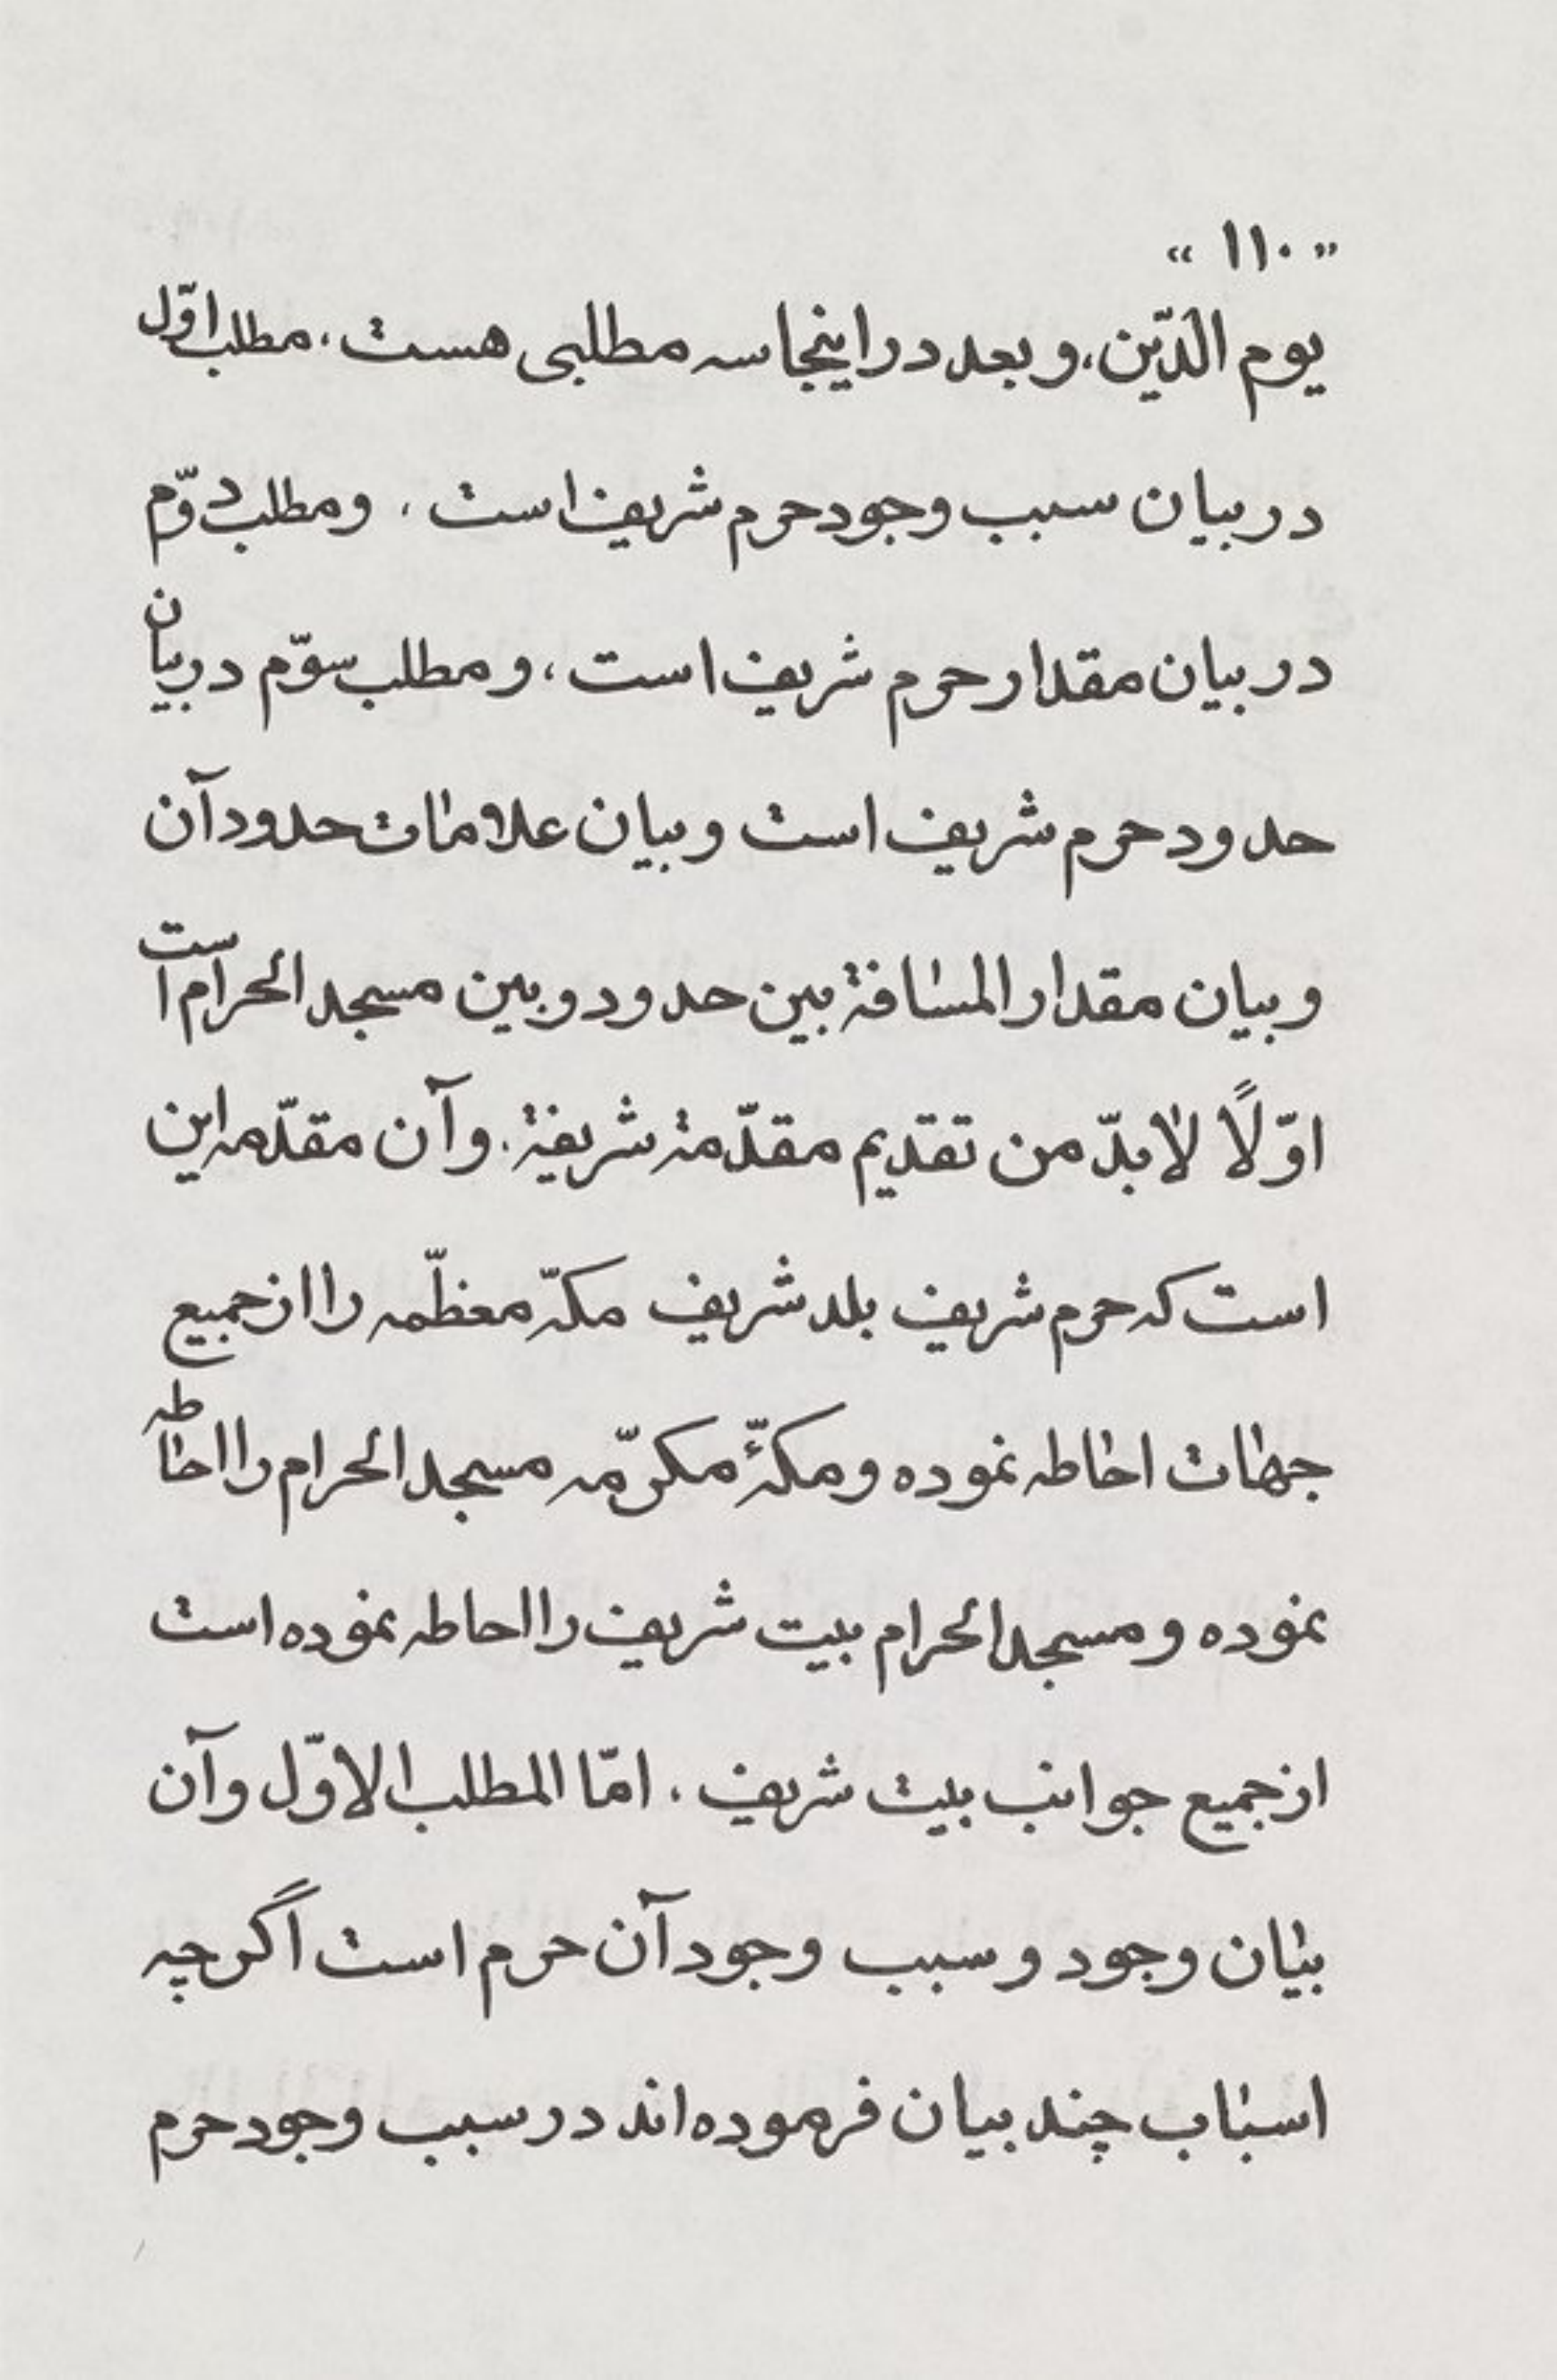 « ۱۱۰ »
یوم الدّین، و بعد در اینجا سه مطلبی هست، مطلب اوّل
در بیان سبب وجود حرم شریف است، و مطلب دوّم
در بیان مقدار حرم شریف است، و مطلب سوّم در بیان
حدود حرم شریف است و بیان علامات حدود آن
و بیان مقدار المسافة بین حدود و بین مسجد الحرام است
اوّلًا لابدّ من تقدیم مقدّمة شریفة. و آن مقدّمه این
است که حرم شریف بلد شریف مکّه معظّمه را از جمیع
جهات احاطه نموده و مکّهٔ مکرّمه مسجد الحرام را احاطه
نموده و مسجد الحرام بیت شریف را احاطه نموده است
از جمیع جوانب بیت شریف. امّا المطلب الاوّل و آن
بیان وجود و سبب وجود آن حرم است اگرچه
اسباب چند بیان فرموده‌اند در سبب وجود حرم